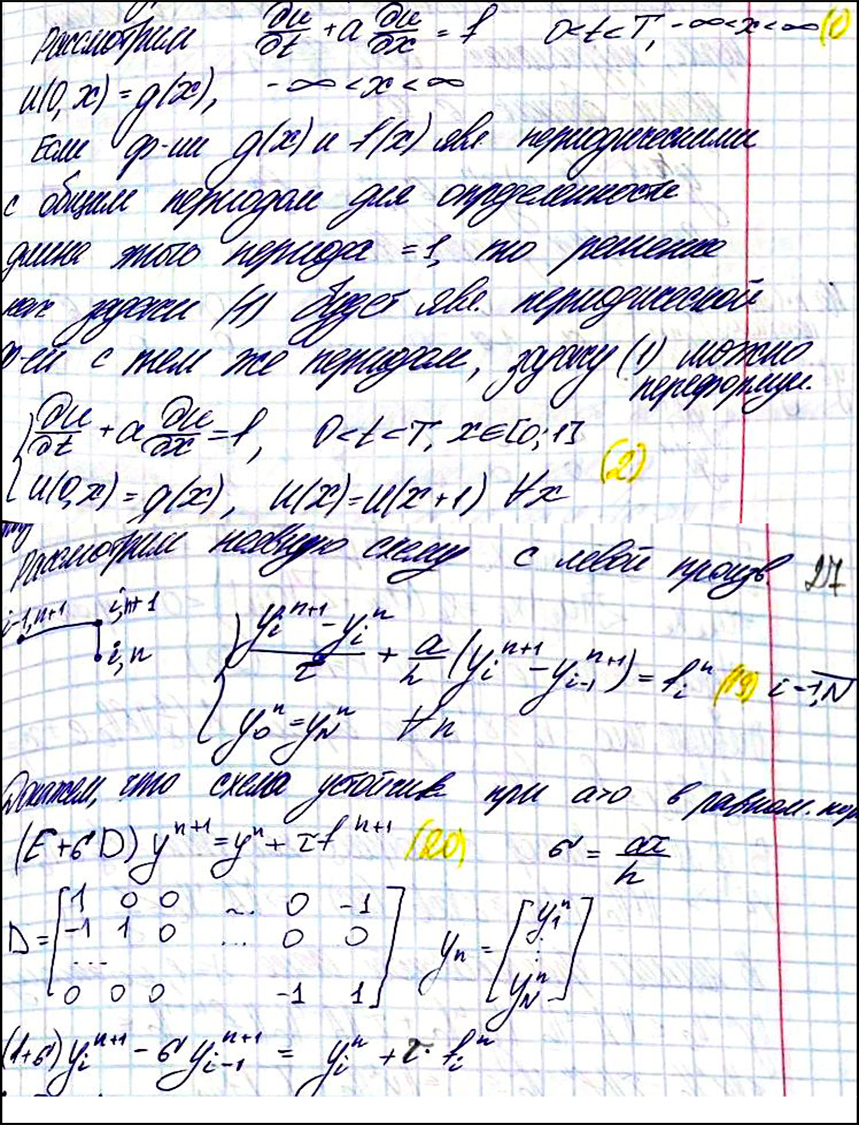 Рассмотрим ∂u/∂t + a ∂u/∂x = f 0<t<T, -∞<x<∞ (1)
u(0,x) = g(x), -∞<x<∞
Если ф-ии g(x) и f(x) явл. периодическими
с общим периодом для определенности
длина этого периода =1, то решение
задачи (1) будет явл. периодической
ф-ей с тем же периодом, задачу (1) можно
переформул.
∂u/∂t + a ∂u/∂x = f, 0<t<T, x∈[0;1]
(2)
u(0,x) = g(x), u(x)=u(x+1) ∀x
Рассмотрим неявную схему с левой произв. 27
i-1,n+1 i,n+1
i,n
(y_i^{n+1} - y_i^n)/τ + a/h (y_i^{n+1} - y_{i-1}^{n+1}) = f_i^n (19) i=1,N
y_0^n = y_N^n ∀n
Докажем, что схема устойчив. при a>0 в равном. нор
(E+σD) y^{n+1} = y^n + τf^{n+1} (20) σ = aτ/h
D = [1 0 0 ... 0 -1
-1 1 0 ... 0 0
...
0 0 0 -1 1]
y_n = [y_1^n
⋮
y_N^n]
(1+σ) y_i^{n+1} - σ y_{i-1}^{n+1} = y_i^n + τ·f_i^n